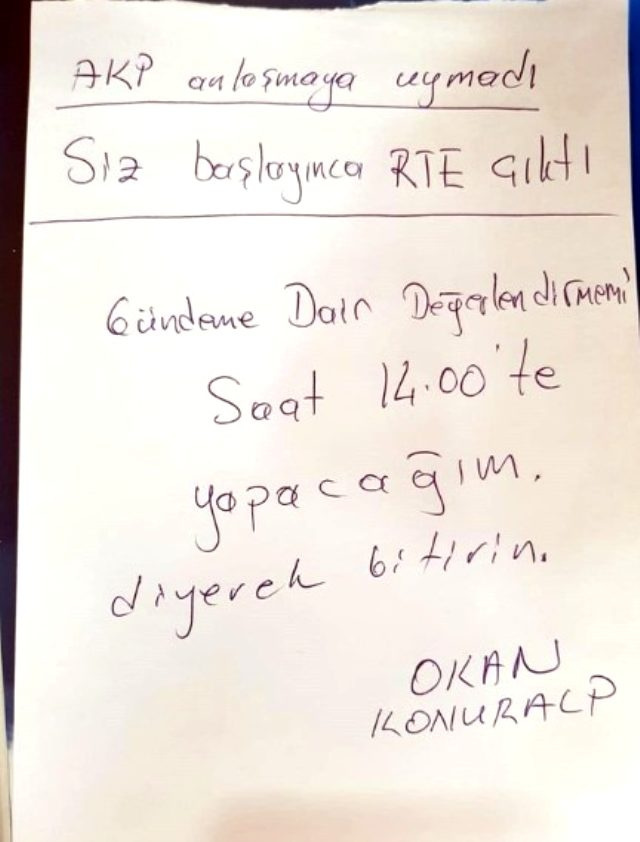 AKP anlaşmaya uymadı
Siz başlayınca RTE çıktı
Gündeme Dair Değerlendirmemi
Saat 14.00'te
yapacağım.
diyerek bitirin.
OKAN
KONURALP